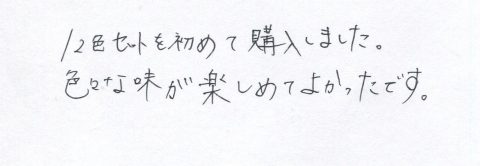 12色セットを初めて購入しました。
色々な味が楽しめてよかったです。